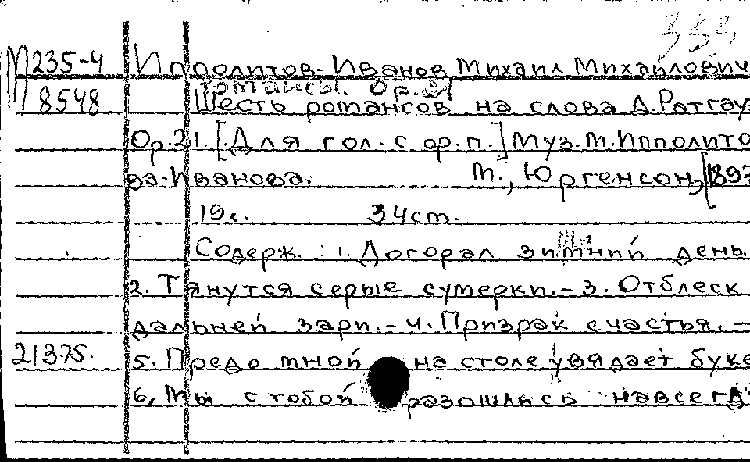 М235-4 Ипполитов-Иванов Михаил Михайлович
Романсы. Ор.21
8548 Шесть романсов на слова Д.Ратгау
Ор.21. [Для гол. с ф.п.] Муз. М.Ипполито
ва-Иванова. М., Юргенсон, [189
19с. 34см.
Содерж.: 1. Догорал зимний день.
2. Тянутся серые сумерки. - 3. Отблеск
дальней зари. - 4. Призрак счастья. -
21375. 5. Предо мной на столе увядает буке
6. Мы с тобой разошлись навсегд